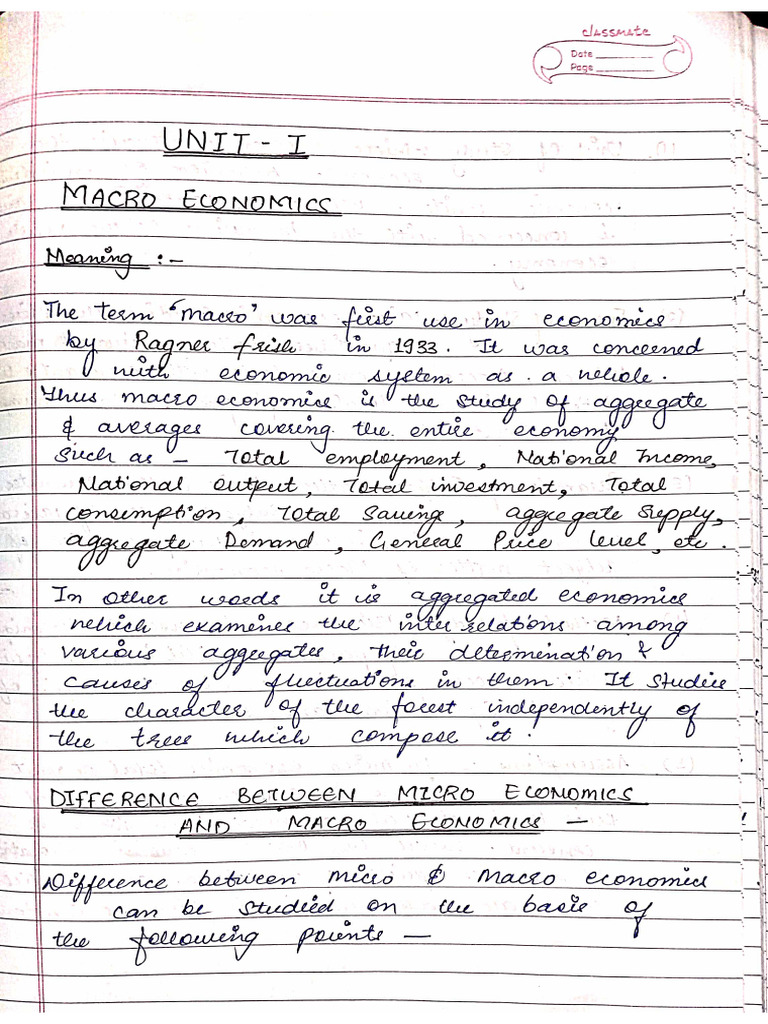 classmate
Date
Page
UNIT - I
MACRO ECONOMICS
Meaning :-
The term 'macro' was first use in economics
by Ragner frish in 1933. It was concerned
with economic system as a whole.
Thus macro economics is the study of aggregate
& averages covering the entire economy
such as - Total employment, National Income,
National output, Total investment, Total
consemption, Total Saving, aggregate supply,
aggregate Demand, General Price level, etc.
In other words it is aggregated economics
which examines the inter relations among
various aggregates, their determination &
causes of fluctuations in them. It studies
the character of the forest independently of
the trees which compose it.
DIFFERENCE BETWEEN MICRO ECONOMICS
AND MACRO ECONOMICS -
Difference between micro & macro economics
can be studied on the basis of
the following points -